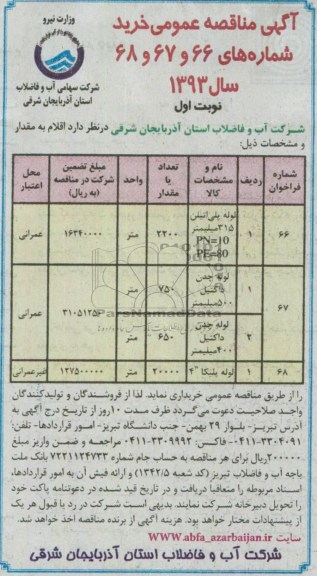 آگهی مناقصه عمومی خرید
شماره‌های ۶۶ و ۶۷ و ۶۸
سال ۱۳۹۳
نوبت اول
وزارت نیرو
شرکت سهامی آب و فاضلاب
استان آذربایجان شرقی
شرکت آب و فاضلاب استان آذربایجان شرقی درنظر دارد اقلام به مقدار
و مشخصات ذیل:
شماره فراخوان ردیف نام و مشخصات کالا تعداد یا مقدار واحد مبلغ تضمین شرکت در مناقصه (به ریال) محل اعتبار
۶۶ ۱ لوله پلی‌اتیلن ۳۱۵میلیمتر PN=10 PE=80 ۲۲۰۰ متر ۱۶۲۴۰۰۰۰ عمرانی
۶۷ ۱ لوله چدن داکتیل ۵۰۰میلیمتر ۷۵۰ متر عمرانی
۲ لوله چدن داکتیل ۴۰۰میلیمتر ۶۵۰ متر
۶۸ ۱ لوله پلیکا ۴" ۲۰۰۰۰ متر ۱۲۷۵۰۰۰۰۰ غیرعمرانی
را از طریق مناقصه عمومی خریداری نماید. لذا از فروشندگان و تولیدکنندگان
واجد صلاحیت دعوت می‌گردد ظرف مدت ۱۰روز از تاریخ درج آگهی به
آدرس تبریز- بلوار ۲۹ بهمن- جنب دانشگاه تبریز- امور قراردادها- تلفن:
۰۴۱۱-۳۳۰۴۰۹۱- فاکس: ۰۴۱۱-۳۳۰۹۹۹۲ مراجعه و ضمن واریز مبلغ
۲۰۰۰۰۰ریال برای هر مناقصه به حساب جام شماره ۷۲۲۱۱۲۴۷۳۳ بانک ملت
باجه آب و فاضلاب تبریز (کد شعبه ۱۳۴۲/۵) و ارائه فیش آن به امور قراردادها،
اسناد مربوطه را متعاقبا دریافت و در تاریخ قید شده در دعوتنامه پاکت خود
را تحویل دبیرخانه شرکت نمایند. بدیهی است شرکت در رد یا قبول هر یک
از پیشنهادات مختار خواهد بود. هزینه آگهی از برنده مناقصه اخذ خواهد شد.
سایت www.abfa_azarbaijan.ir
شرکت آب و فاضلاب استان آذربایجان شرقی